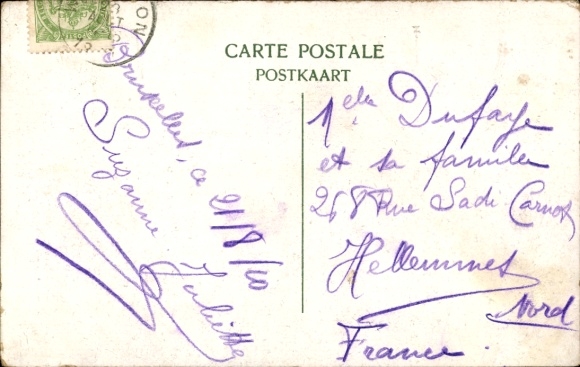 CARTE POSTALE
POSTKAART
Bruxelles, ce 21/8/10
Suzanne Juliette
Dufaye
et sa famille
268 Rue Sadi Carnot
Hellemmes
Nord
France.